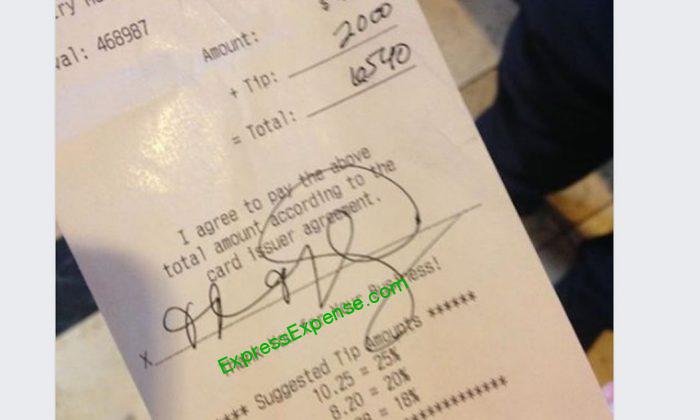 val: 468987
Amount: $
+ Tip: 2000
= Total: 6540
I agree to pay the above
total amount according to the
card issuer agreement.
x
Thank You for Your Business!
ExpressExpense.com
**** Suggested Tip Amounts ******
10.25 = 25%
8.20 = 20%
= 18%